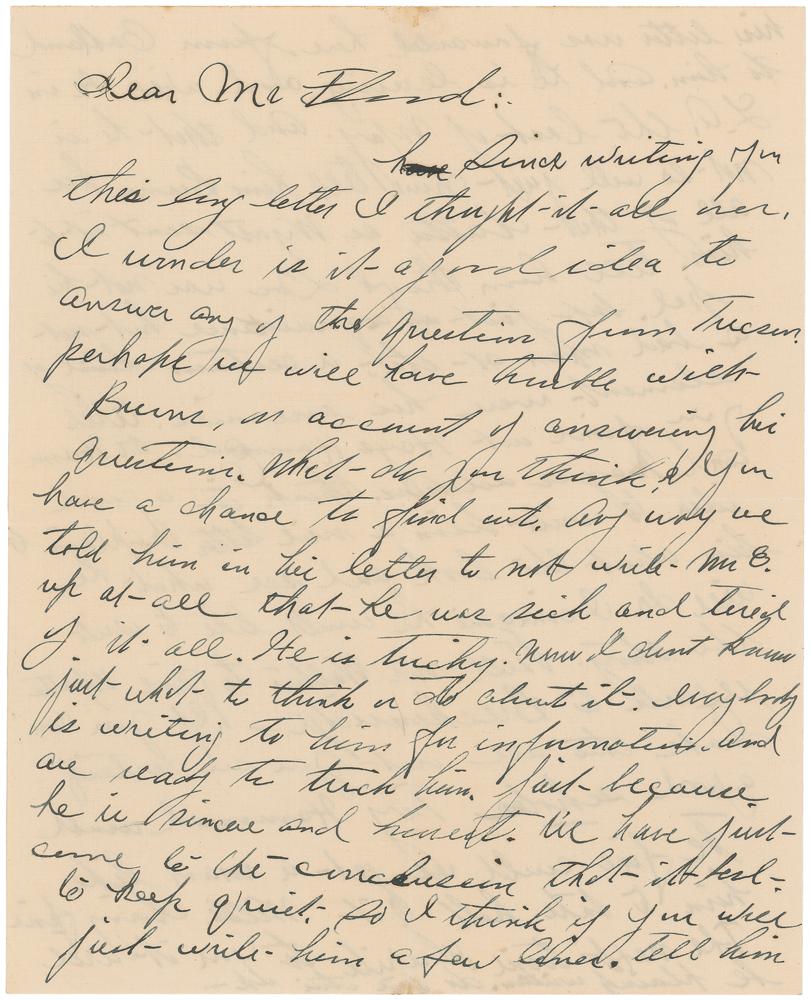 Dear Mr Flood:
have Since writing you
this long letter I thought it all over.
I wonder is it a good idea to
answer any of the question from Tucson.
perhaps we will have trouble with
Burns, on account of answering his
question. What do you think? You
have a chance to find out. Any way we
told him in his letter to not write Mr E.
up at all that he was sick and tired
of it all. He is tricky. Now I dont know
just what to think or do about it. everybody
is writing to him for information. and
are ready to trick him. just because
he is sincere and honest. We have just
come to the conclusion that it best
to keep quiet. so I think if you will
just write him a few lines. tell him